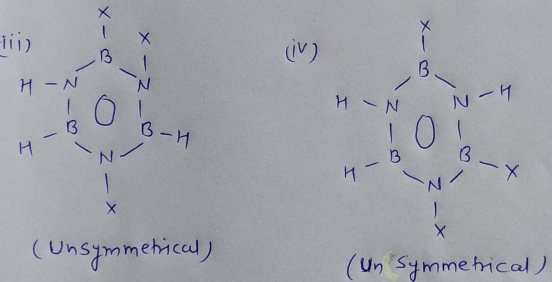 (iii)
X
X
B
H - N
N
B
B - H
H
N
X
(Unsymmetrical)
(iv)
X
B
H - N
N - H
B
B - X
H
N
X
(Un Symmetrical)